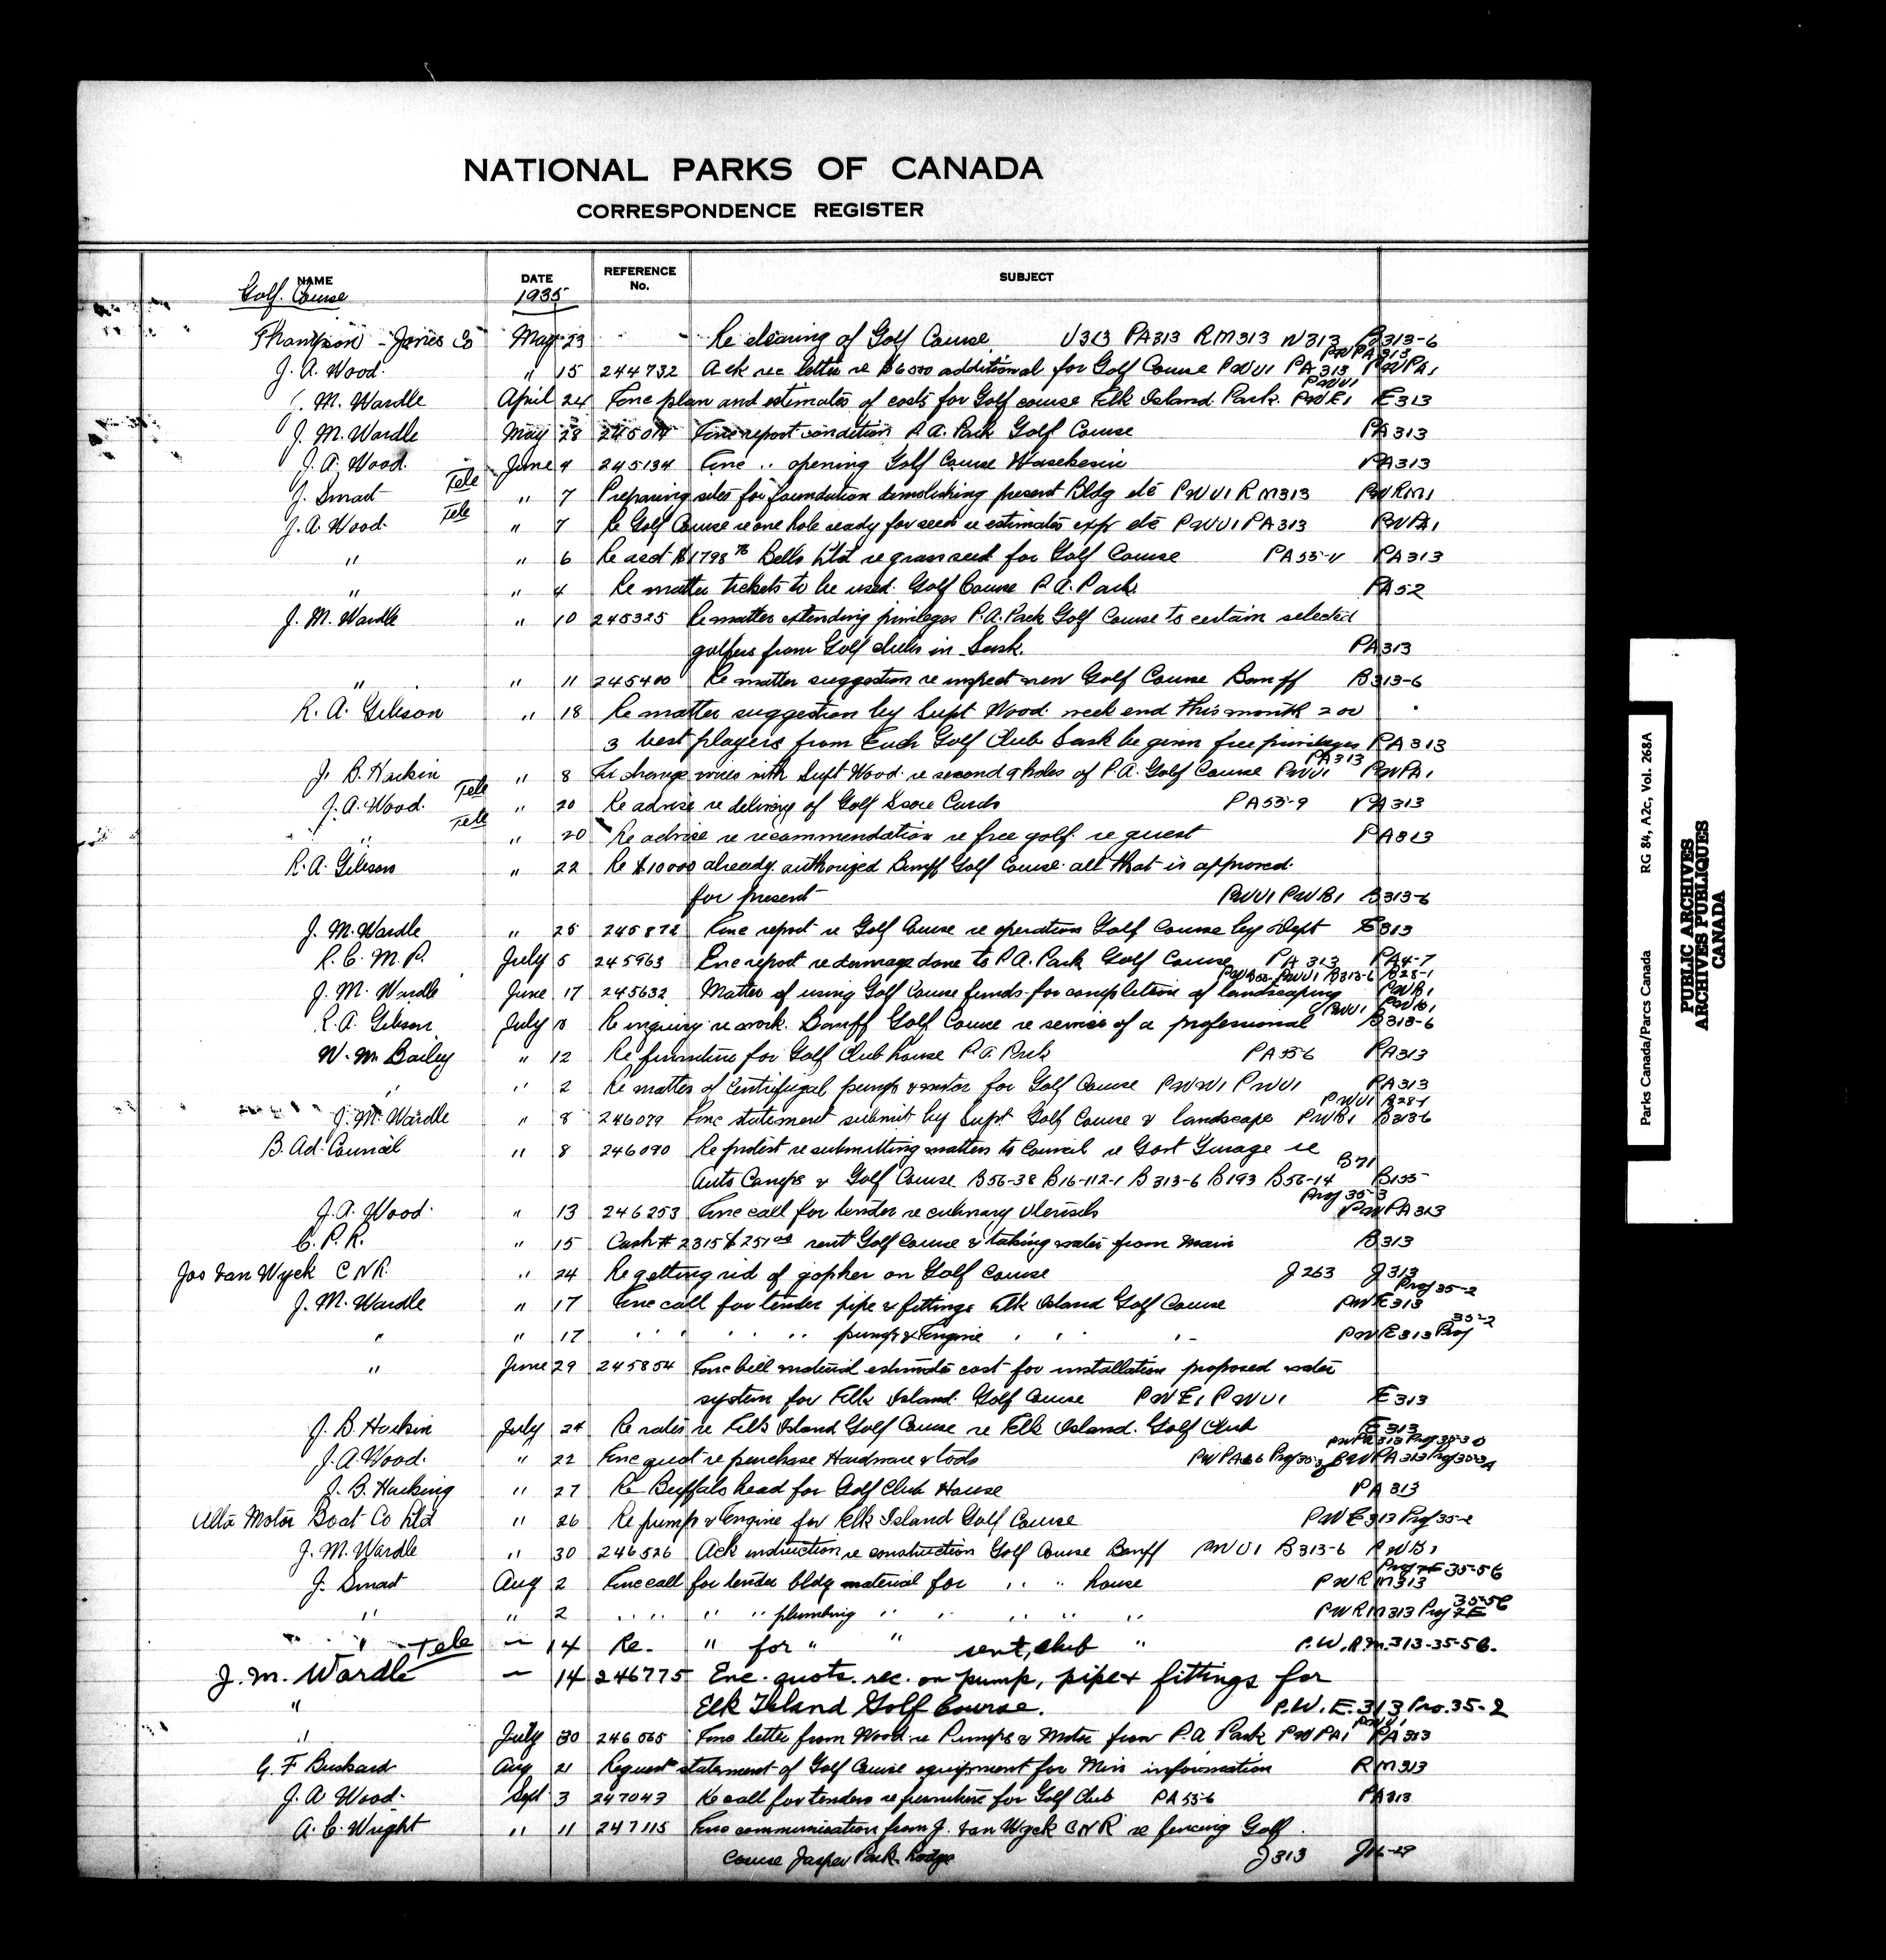 NATIONAL PARKS OF CANADA
CORRESPONDENCE REGISTER
NAME DATE REFERENCE No. SUBJECT
Golf Course 1935
Thompson - Jones Co May 23 Re clearing of Golf Course U313 PA313 RM313 N313 B313-6
PWPA313
J. A. Wood. " 15 244732 Ack rec letter re $6000 additional for Golf Course PWU1 PA313 PWPA1
PWU1
J. M. Wardle April 24 Enc plan and estimates of costs for Golf course Elk Island Park. PWE1 E313
J. M. Wardle May 28 245014 Enc report condition P.A. Park Golf Course PA313
J. A. Wood. June 4 245134 Enc " opening Golf Course Waskesiu PA313
J. Smart Tele " 7 Preparing sites for foundation demolishing present Bldg etc PWU1 RM313 PWRM1
J. A. Wood. Tele " 7 Re Golf Course re one hole ready for seed re estimates exp etc PWU1 PA313 PWPA1
" " 6 Re acct $1798 76 Bells Ltd re grass seed for Golf Course PA55-4 PA313
" " 4 Re matter tickets to be used. Golf Course P.A. Park. PA52
J. M. Wardle " 10 245325 Re matter extending privileges P.A. Park Golf Course to certain selected
golfers from Golf clubs in Sask. PA313
" " 11 245400 Re matter suggestion re inspect new Golf Course Banff B313-6
R. A. Gibson " 18 Re matter suggestion by Supt Wood. week end this month 2 or
3 best players from Each Golf Club Sask be given free privileges PA313
PA313
J. B. Harkin " 8 Exchange wires with Supt Wood re second 9 holes of P.A. Golf Course PWU1 PWPA1
J. A. Wood. Tele " 20 Re advise re delivery of Golf Score Cards PA55-9 PA313
" Tele " 20 Re advise re recommendation re free golf re guest PA313
R. A. Gibson " 22 Re $10000 already authorized Banff Golf Course all that is approved.
for present PWU1 PWB1 B313-6
J. M. Wardle " 25 245872 Enc report re Golf Course re operation Golf Course by Dept E313
R. C. M. P. July 5 245963 Enc report re damage done to P.A. Park Golf Course PA313 PA4-7
PWU1 B313-6 B28-1
J. M. Wardle June 17 245632 Matter of using Golf Course funds for completion of landscaping PWB1
PWU1 PWB1
R. A. Gibson July 8 Re inquiry re work. Banff Golf Course re service of a professional B313-6
W. M. Bailey " 12 Re furniture for Golf Club house P.A. Park PA55-6 PA313
" " 2 Re matter of Centrifugal pump & motor for Golf Course PWW1 PWU1 PA313
PWU1 B28-1
J. M. Wardle " 8 246079 Enc statement submit by Supt Golf Course & landscape PWB1 B313-6
B. Ad. Council " 8 246090 Re protest re submitting matters to Council re Govt Garage re
B71
Auto Camps & Golf Course B56-38 B16-112-1 B313-6 B193 B56-14 B155
Proj 35-3
J. A. Wood. " 13 246253 Enc call for tender re culinary Utensils PWPA313
C. P. R. " 15 Cash # 2315 $251 00 rent Golf Course & taking water from main B313
Jas Van Wyck C N R. " 24 Re getting rid of gopher on Golf Course J263 J313
Proj 35-2
J. M. Wardle " 17 Enc call for tender pipe & fittings Elk Island Golf Course PWE313
35-2
" " 17 " " " " " " pump & Engine " " " PWE313 Proj
" June 29 245854 Enc bill material estimate cost for installation proposed water
system for Elk Island. Golf Course PWE1 PWU1 E313
J. B. Harkin July 24 Re rates re Elk Island Golf Course re Elk Island. Golf Club E313
J. A. Wood. " 22 Enc quot re purchase Hardware & tools
J. B. Harking " 27 Re Buffalo head for Golf Club House PA313
Alta Motor Boat Co Ltd " 26 Re pump & Engine for Elk Island Golf Course PWE313 Proj 35-2
J. M. Wardle " 30 246526 Ack instruction re construction Golf Course Banff PWU1 B313-6 PWB1
35-56
J. Smart Aug 2 Enc call for tender bldg material for " " house PWRM313
35-56
" " 2 " " " " plumbing " " " " " PWRM313 Proj
" Tele — 14 Re. " for " " sent, club " P.W.R.M.313-35-56.
J. M. Wardle — 14 246775 Enc. quots. rec. on pump, pipe & fittings for
" Elk Island Golf Course. P.W.E.313 Pro. 35-2
PWU1
" July 30 246565 Enc letter from Wood re Pumps & Motor from P.A. Park PWPA1 PA313
G. F. Buskard Aug 21 Request statement of Golf Course equipment for Mins information RM313
J. A Wood. Sept 3 247043 Re call for tenders re furniture for Golf Club PA55-6 PA313
A. C. Wright " 11 247115 Enc communication from J. Van Wyck CNR re fencing Golf.
Course Jasper Park Lodge J313 J16-29
Parks Canada/Parcs Canada RG 84, A2c, Vol. 268A
PUBLIC ARCHIVES
ARCHIVES PUBLIQUES
CANADA